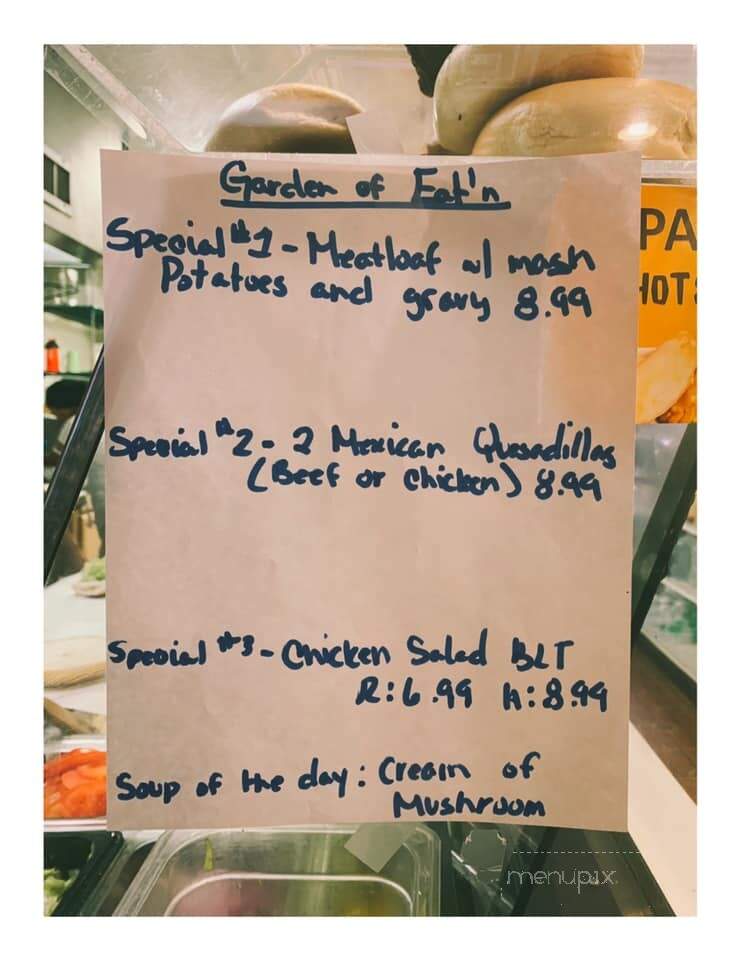 Garden of Eat'n
Special #1 - Meatloaf w/ mash
Potatoes and gravy 8.99
Special #2 - 2 Mexican Quesadillas
(Beef or Chicken) 8.99
Special #3 - Chicken Salad BLT
R: 6.99 H: 8.99
Soup of the day: Cream of
Mushroom
PA
HOT
menupix